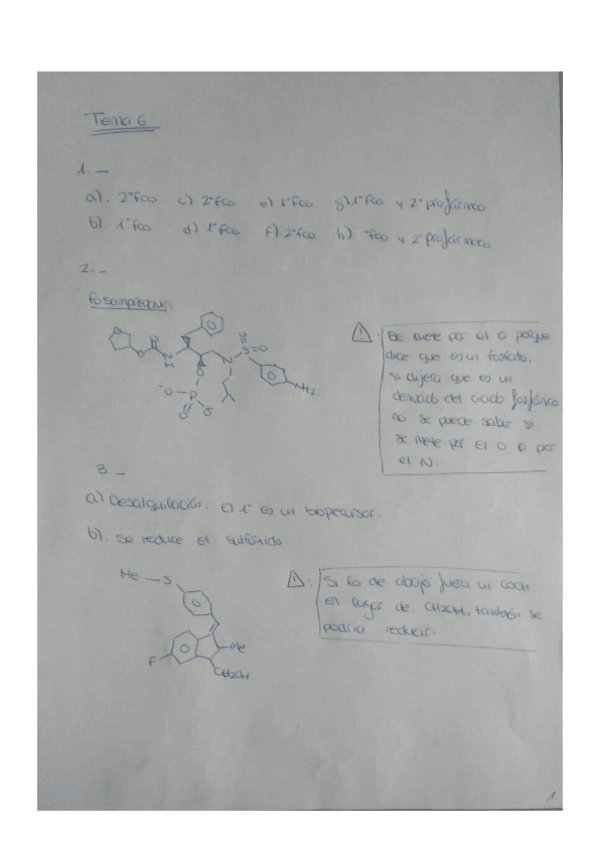 Tema 6
1.-
a). 2ºfco c) 2ºfco e) 1ºfco g) 1ºfco y 2º profármaco
b) 1ºfco. d) 1ºfco f) 2ºfco h) ºfco y 2º profármaco
2.-
fosamprenavir.
O
O
O
N
H
O
N
S=O
O
NH2
⁻O
P
O
O
⚠: Se mete por el O porque
dice que es un fosfato.
Si dijera que es un
derivado del ácido fosfónico
no se puede saber si
se mete por el O o por
el N.
3.-
a) Desalquilación. El 1º es un bioprecursor.
b). Se reduce el sulfóxido.
Me—S
F
Me
CH2OH
⚠: Si lo de abajo fuera un COOH
en lugar de CH2OH, también se
podría reducir.
1.